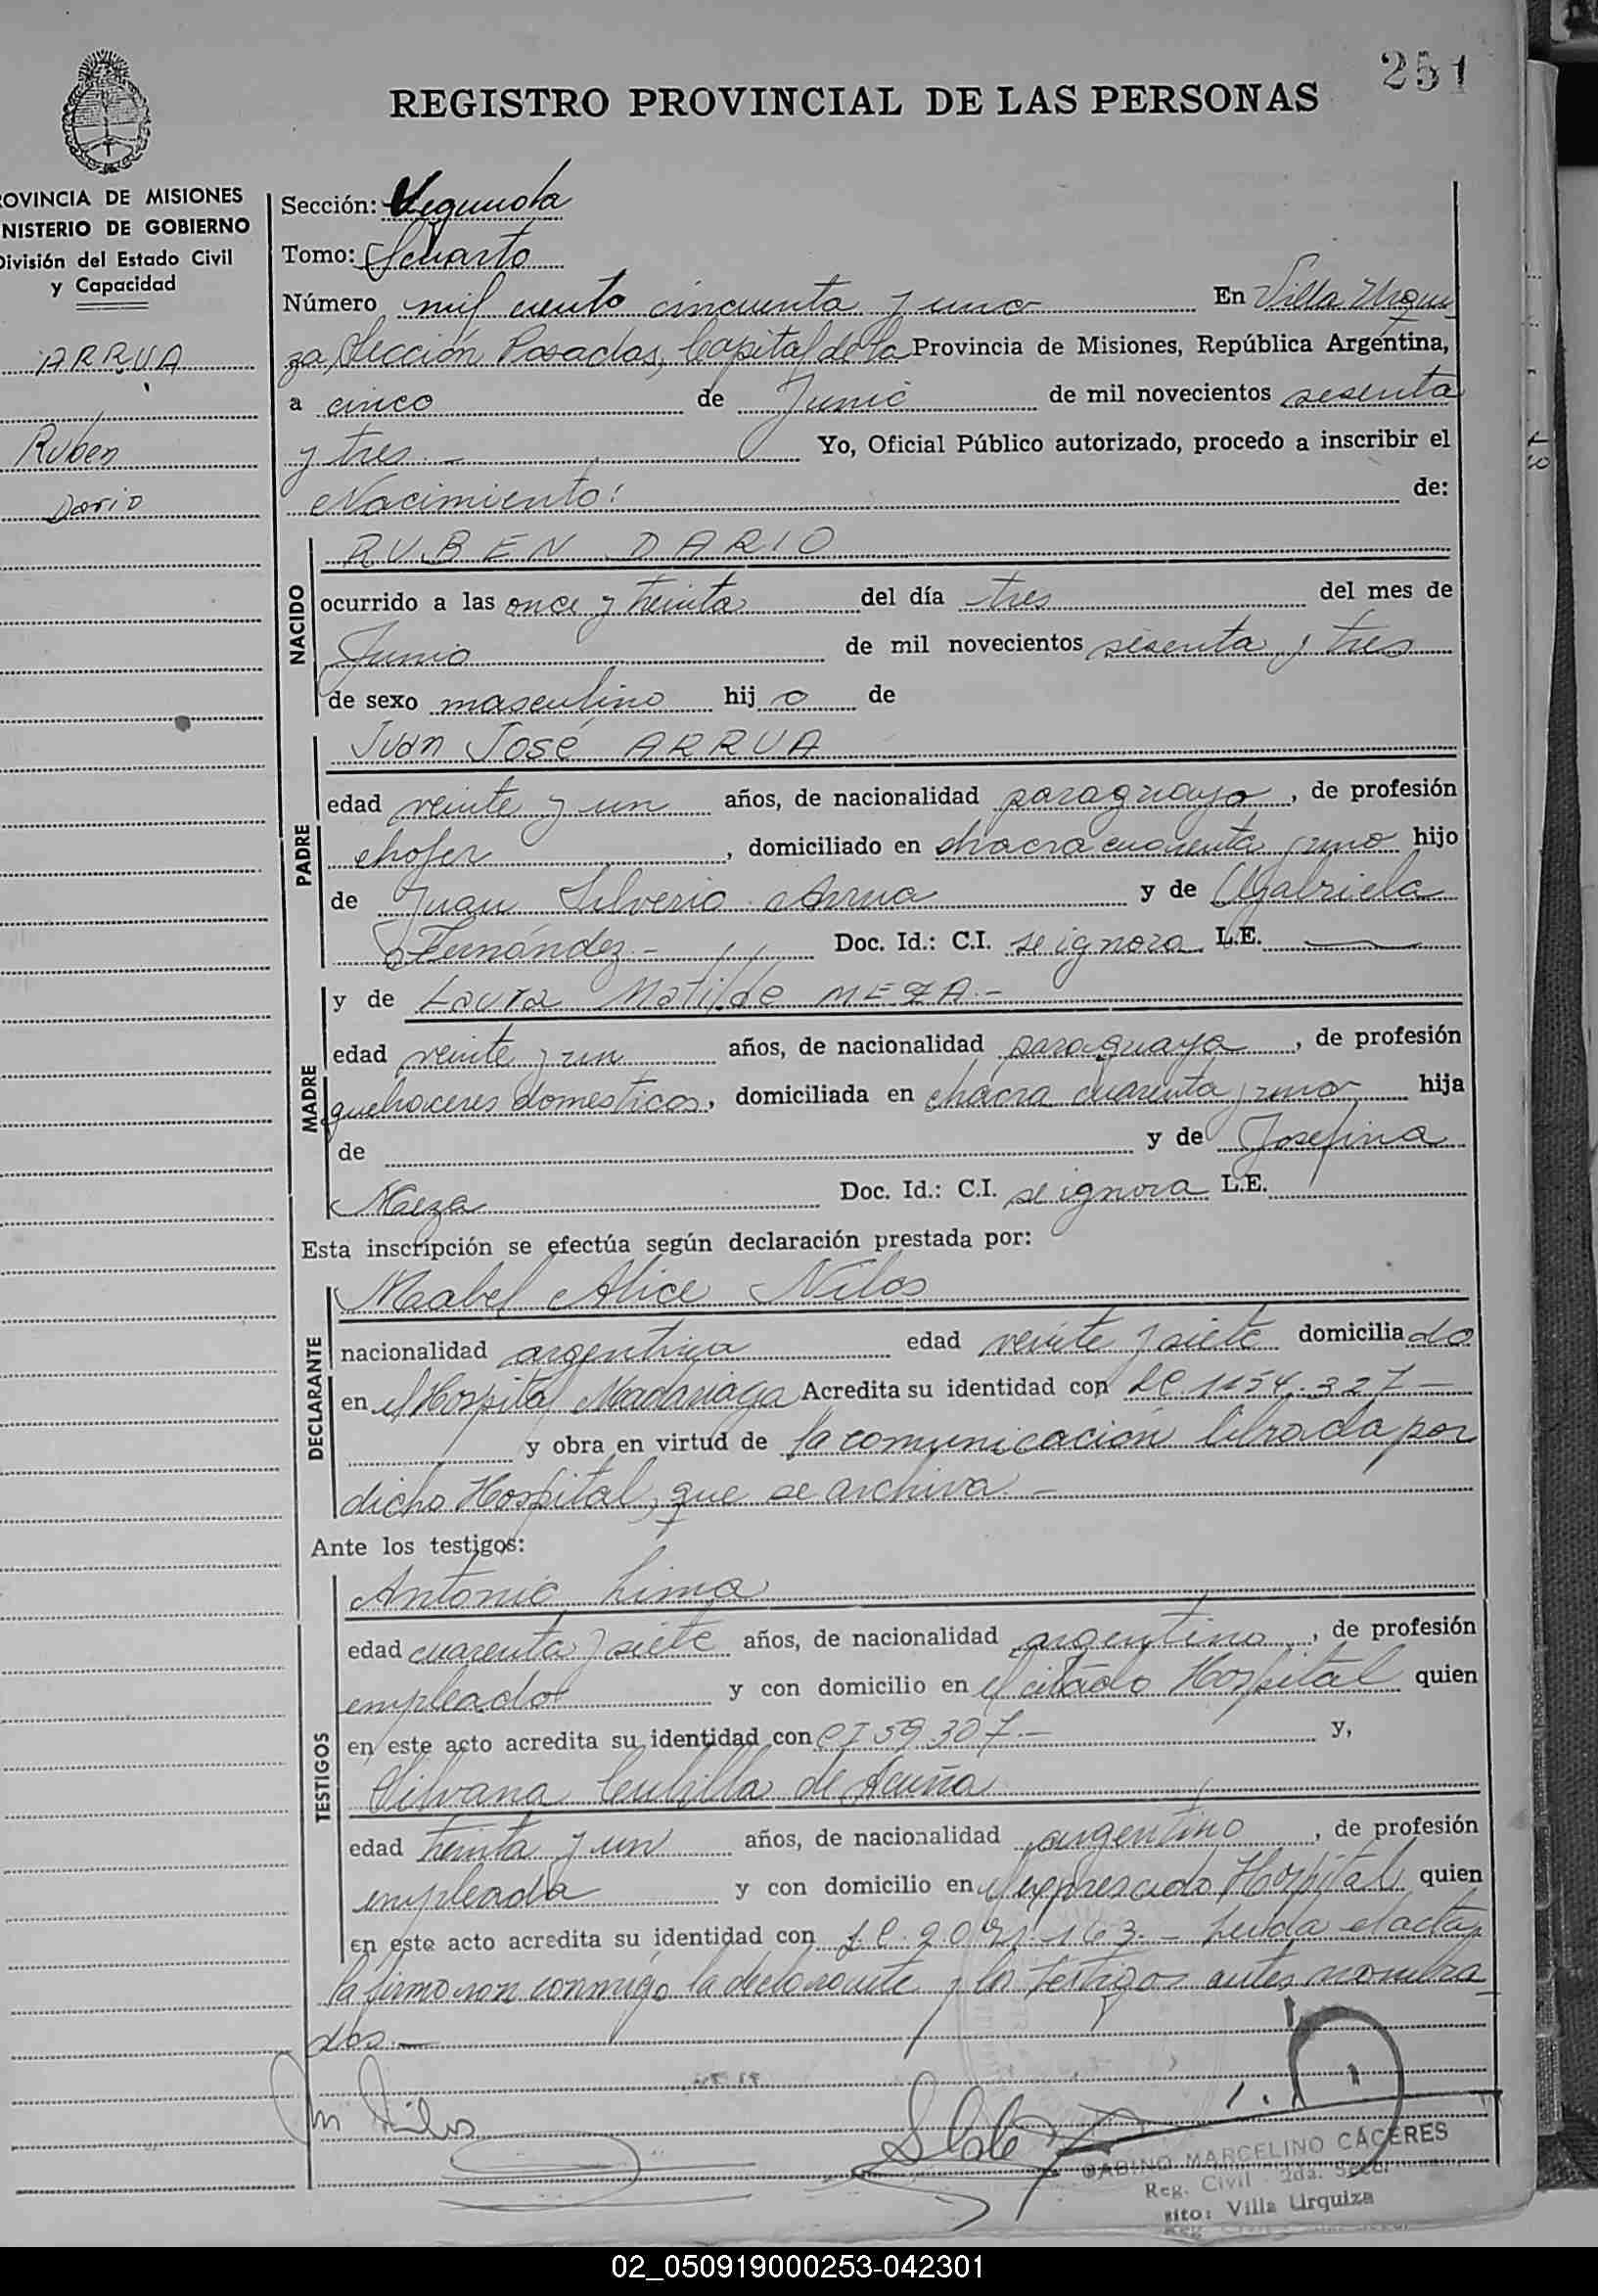 251
REGISTRO PROVINCIAL DE LAS PERSONAS
ROVINCIA DE MISIONES
NISTERIO DE GOBIERNO
División del Estado Civil
y Capacidad
ARRUA
Ruben
Dario
Sección: Segunda
Tomo: Cuarto
Número mil ciento cincuenta y uno En Villa Urqui
za, Sección Posadas, Capital de la Provincia de Misiones, República Argentina,
a cinco de Junio de mil novecientos sesenta
y tres.- Yo, Oficial Público autorizado, procedo a inscribir el
Nacimiento: de:
NACIDO
RUBEN DARIO
ocurrido a las once y treinta del día tres del mes de
Junio de mil novecientos sesenta y tres
de sexo masculino hij o de
PADRE
Juan José ARRUA
edad veinte y un años, de nacionalidad paraguayo, de profesión
chofer, domiciliado en chacra cuarenta y uno hijo
de Juan Silverio Arrua y de Gabriela
Fernández.- Doc. Id.: C.I. se ignora L.E.
MADRE
y de Laura Matilde MEZA.-
edad veinte y un años, de nacionalidad paraguaya, de profesión
quehaceres domesticos, domiciliada en chacra cuarenta y uno hija
de y de Josefina
Meza Doc. Id.: C.I. se ignora L.E.
Esta inscripción se efectúa según declaración prestada por:
DECLARANTE
Mabel Alice Nilos
nacionalidad argentina edad veinte y siete domicilia do
en el Hospital Madariaga Acredita su identidad con LC. 327-
y obra en virtud de la comunicación librada por
dicho Hospital, que se archiva -
Ante los testigos:
TESTIGOS
Antonio Lima
edad cuarenta y siete años, de nacionalidad argentino, de profesión
empleado y con domicilio en el citado Hospital quien
en este acto acredita su identidad con CI 59.307.- y,
Silvana de Acuña
edad treinta y un años, de nacionalidad argentino, de profesión
empleada y con domicilio en el expresado Hospital quien
en este acto acredita su identidad con 163.- Leida el acta,
la firmaron conmigo la declarante y los testigos antes nombra
dos.-
GABINO MARCELINO CACERES
Reg. Civil 2da.
sito: Villa Urquiza
02_050919000253-042301